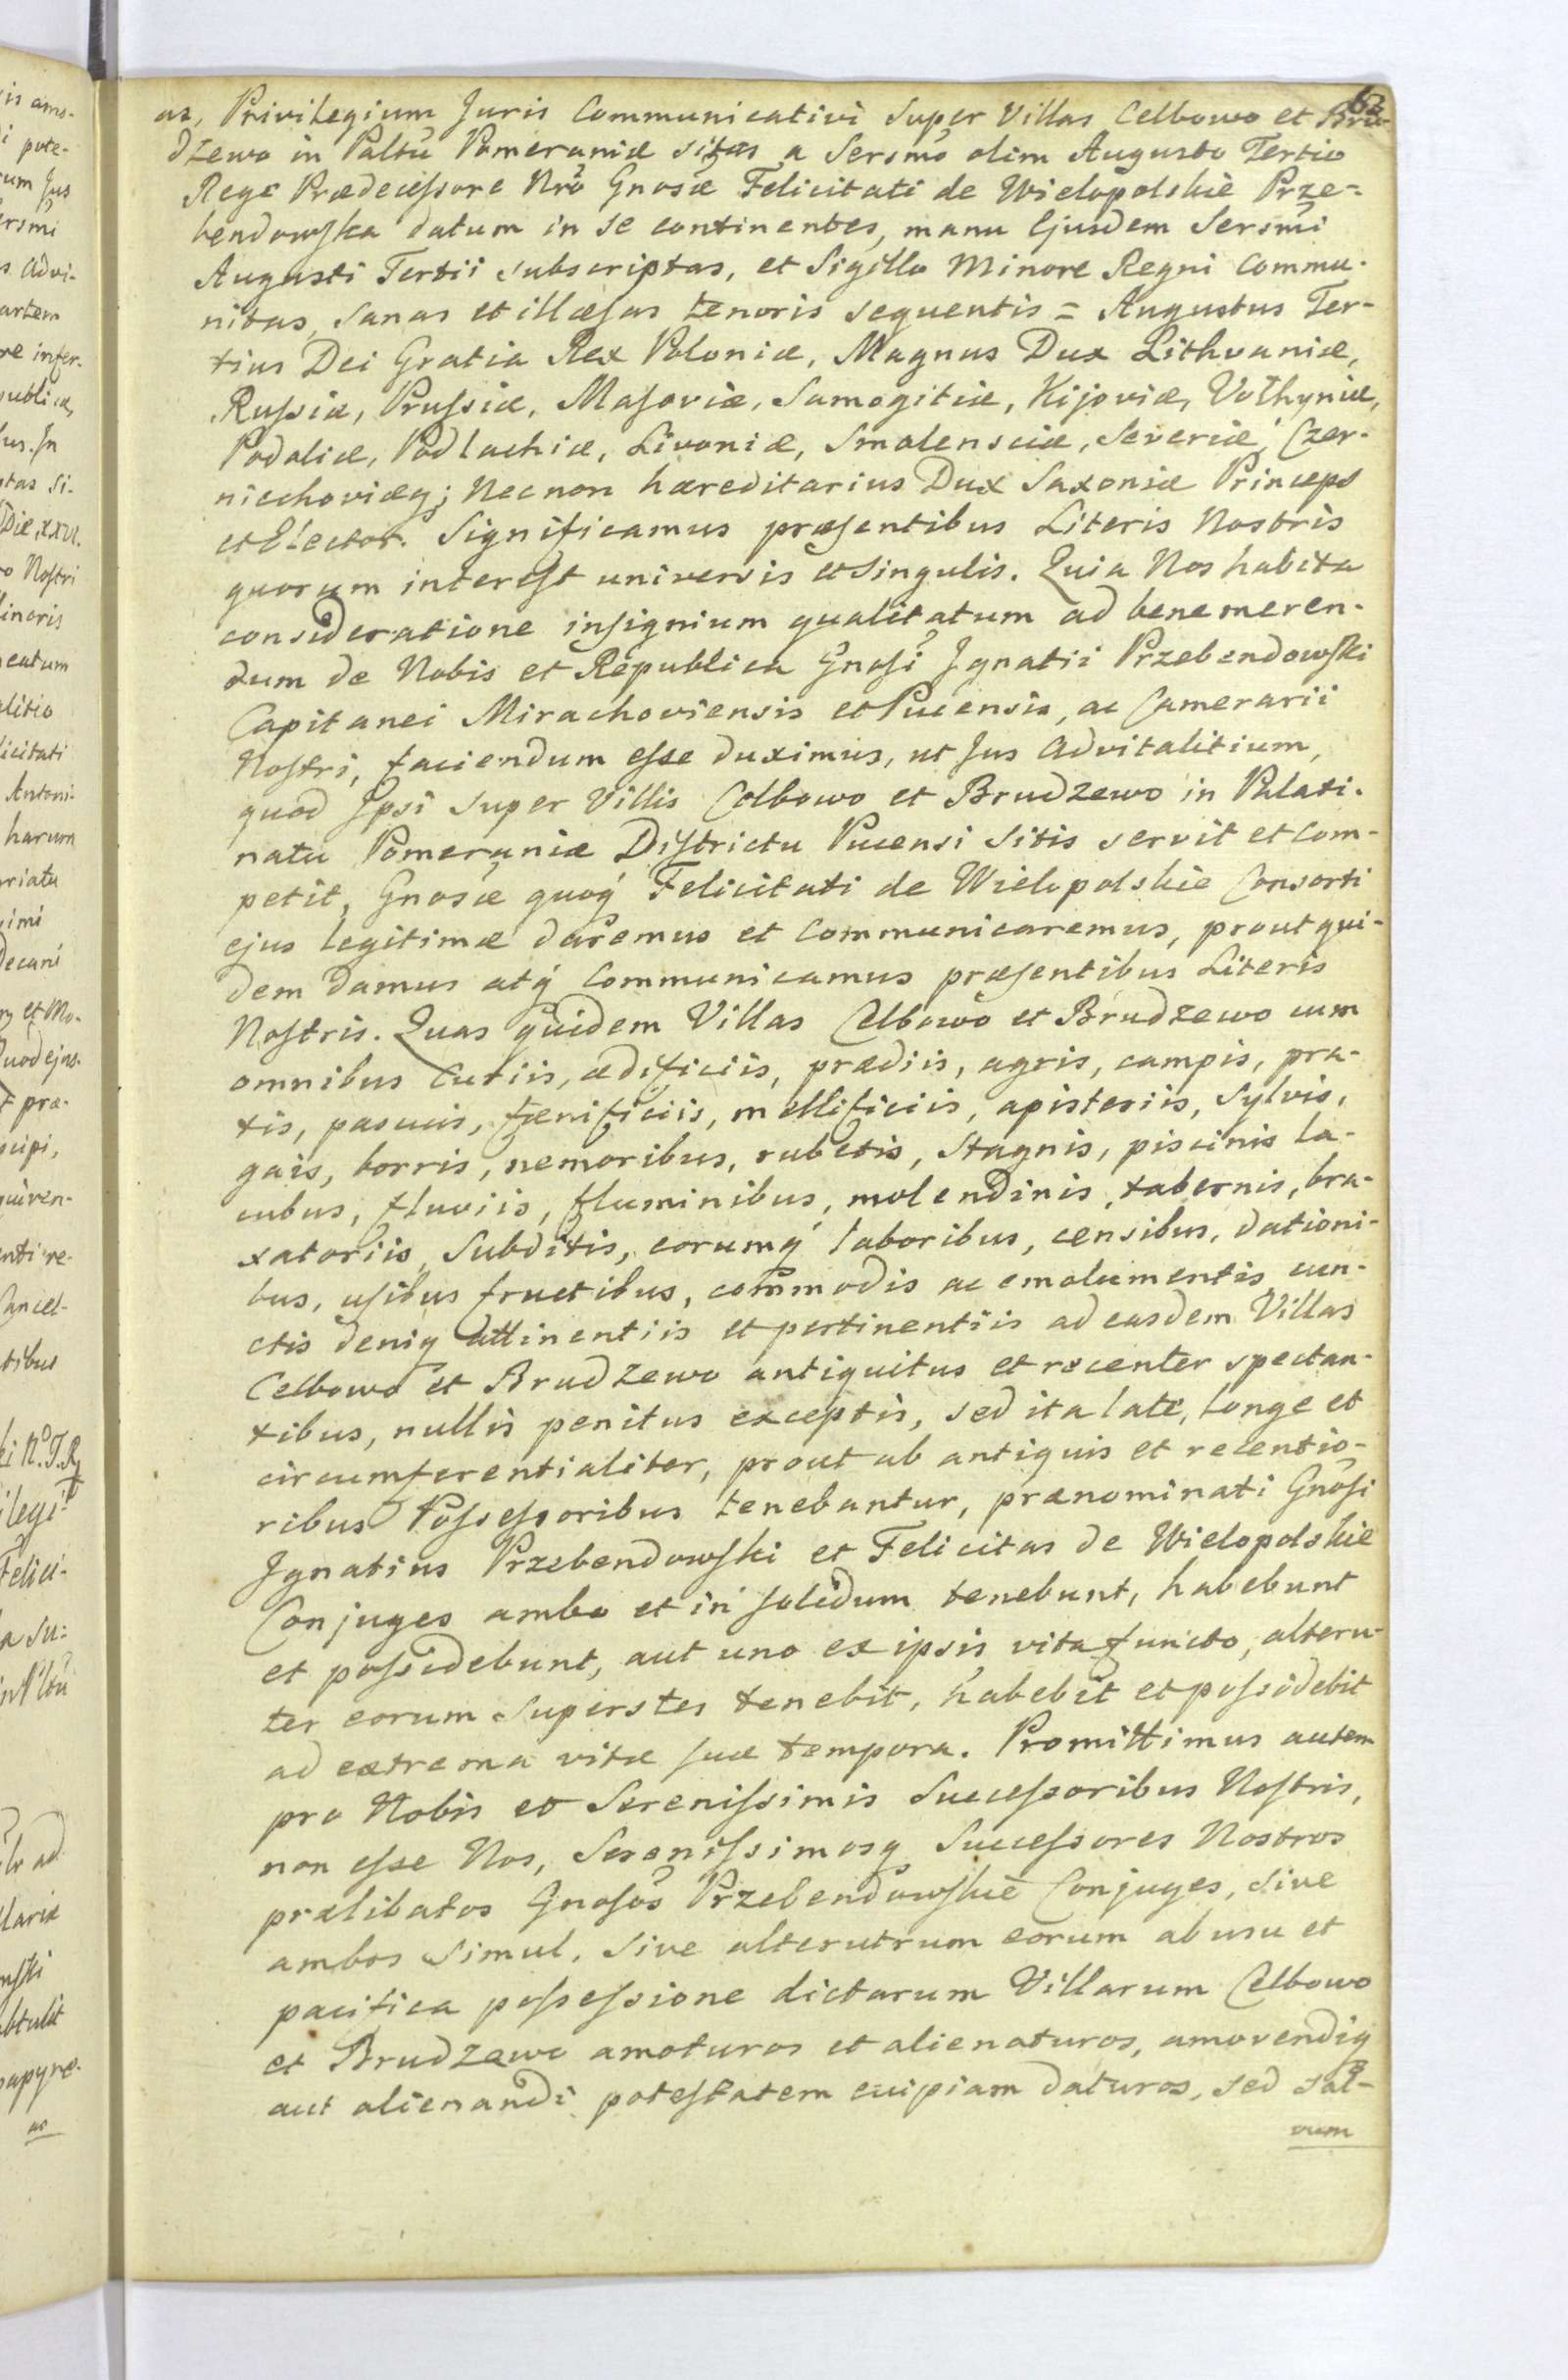 62
as, Privilegium Juris Communicativi super Villas Celbowo et Bru-
dzewo in Paltũ Pomeraniæ sitas a Sersmo olim Augusto Tertio
Rege Prædecessore Nrõ Gnosæ Felicitati de Wielopolskie Prze=
bendowska datum in se continentes, manu Ejusdem Sersmi
Augusti Tertii subscriptas, et Sigillo Minore Regni commu-
nitas, sanas et illæsas tenoris sequentis = Augustus Ter-
tius Dei Gratia Rex Poloniæ, Magnus Dux Lithvaniæ,
Russiæ, Prussiæ, Masoviæ, Samogitiæ, Kijoviæ, Volhyniæ,
Podoliæ, Podlachiæ, Livoniæ, Smolensciæ, Severiæ, Czer-
niechoviæq; Necnon hæreditarius Dux Saxoniæ Princeps
et Elector. Significamus præsentibus Literis Nostris
quorum interest universis et singulis. Quia Nos habita
consideratione insignium qualitatum ad bene meren-
dum de Nobis et Republica Gnosi Ignatii Przebendowski
Capitanei Mirachoviensis et Pucensis, ac Camerarii
Nostri, faciendum esse duximus, ut Jus Advitalitium,
quod Ipsi super Villis Celbowo et Brudzewo in Palati-
natu Pomeraniæ Districtu Pucensi sitis servit et com-
petit, Gnosæ quoq́ Felicitati de Wielopolskie Consorti
ejus legitimæ daremus et communicaremus, prout qui-
dem damus atq́ communicamus præsentibus Literis
Nostris. Quas quidem Villas Celbowo et Brudzewo cum
omnibus curiis, ædificiis, prædiis, agris, campis, pra-
tis, pascuis, fænificiis, mellificiis, apisteriis, sylvis,
gais, borris, nemoribus, rubetis, stagnis, piscinis la-
cubus, fluviis, fluminibus, molendinis, tabernis, bra-
xatoriis, subditis, eorumq́ laboribus, censibus, dationi-
bus, usibus fructibus, commodis ac emolumentis cun-
ctis deniq attinentiis et pertinentiis ad easdem Villas
Celbowo et Brudzewo antiquitus et recenter spectan-
tibus, nullis penitus exceptis, sed ita late, longe et
circumferentialiter, prout ab antiquis et recentio-
ribus Possessoribus tenebantur, prænominati Gnosi
Ignatius Przebendowski et Felicitas de Wielopolskie
Conjuges ambo et in solidum tenebunt, habebunt
et possidebunt, aut uno ex ipsis vita functo, alteru-
ter eorum superstes tenebit, habebit et possidebit
ad extrema vitæ suæ tempora. Promittimus autem
pro Nobis et Serenissimis Successoribus Nostris,
non esse Nos, Serenissimosq Successores Nostros
prælibatos Gnosos Przebendowskie Conjuges, sive
ambos simul, sive alterutrum eorum ab usu et
pacifica possessione dictarum Villarum Celbowo
et Brudzewo amoturos et alienaturos, amovendiq
aut alienandi potestatem cuipiam daturos, sed sal-
vum